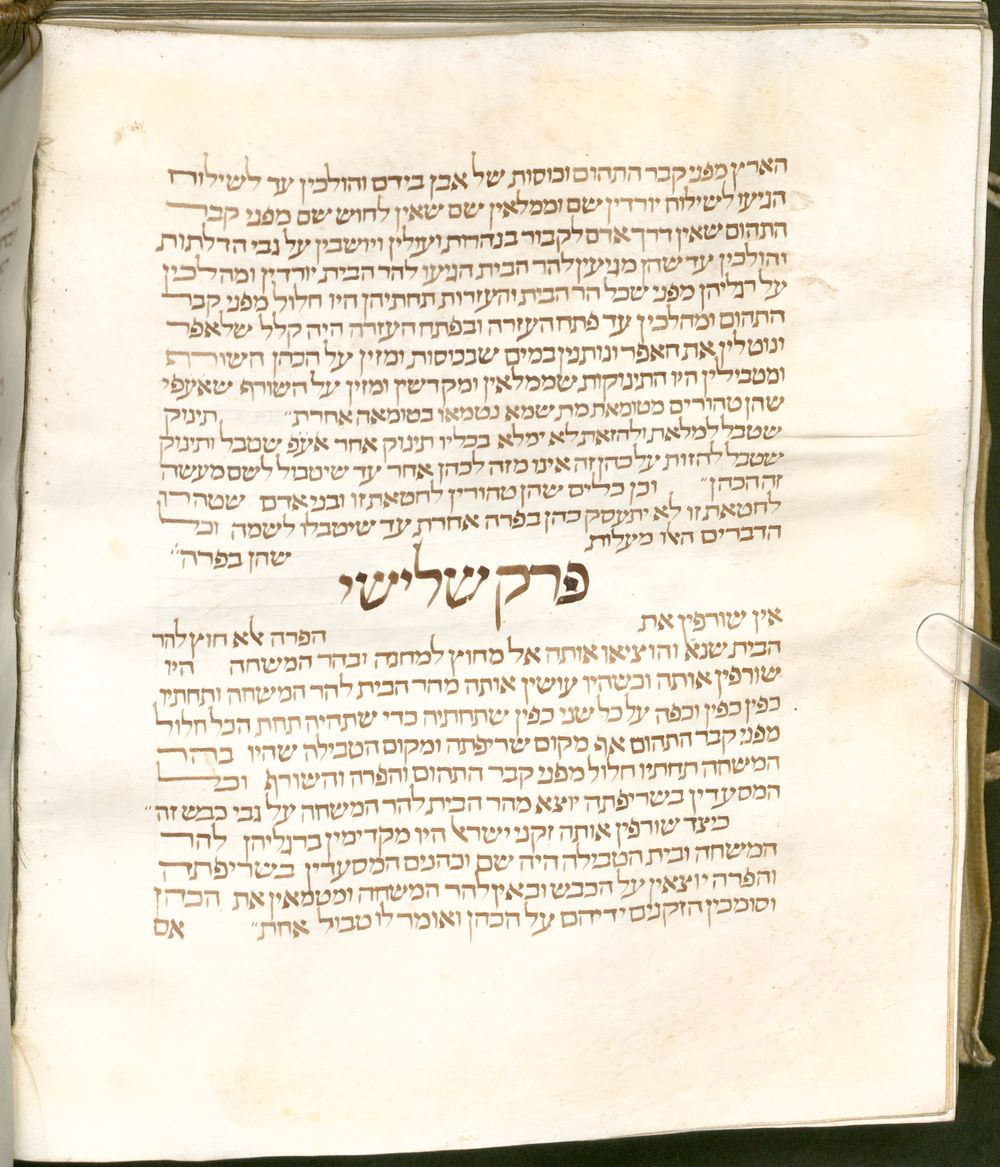 הארץ מפני קבר התהום וכוסות של אבן בידם והולכין עד לשילוח
הגיעו לשילוח יורדין שם וממלאין שם שאין לחוש שם מפני קבר
התהום שאין דרך אדם לקבור בנהרות ועולין ויושבין על גבי הדלתות
והולכין עד שהן מגיעין להר הבית הגיעו להר הבית יורדין ומהלכין
על רגליהן מפני שכל הר הבית והעזרות תחתיהן היו חלול מפני קבר
התהום ומהלכין עד פתח העזרה ובפתח העזרה היה קלל שלאפר
ונוטלין את האפר ונותנין במים שבכוסות ומזין על הכהן השורף
ומטבילין היו התינוקות שממלאין ומקדשין ומזין על השורף שאעפי
שהן טהורים מטומאת מת שמא נטמאו בטומאה אחרת׃ תינוק
שטבל למלאת ולהזאת לא ימלא בכליו תינוק אחר אעפ שטבל ותינוק
שטבל להזות על כהן זה אינו מזה לכהן אחר עד שיטבול לשם מעשה
זה הכהן׃ וכן כלים שהן טהורין לחטאת זו ובני אדם שטהרו
לחטאת זו לא יתעסק כהן בפרה אחרת עד שיטבלו לשמה וכל
הדברים האו מעלות
שהן בפרה׃
פרק שלישי
אין שורפין את
הפרה אלא חוץ להר
הבית שנא והוציאו אותה אל מחוץ למחנה ובהר המשחה היו
שורפין אותה וכשהיו עושין אותה מהר הבית להר המשחה ותחתיו
כפין כפין וכפה על כל שני כפין שתחתיה כדי שתהיה תחת הכל חלול
מפני קבר התהום אף מקום שריפתה ומקום הטבילה שהיו בהר
המשחה תחתיו חלול מפני קבר התהום והפרה והשורף וכל
המסעדין בשריפתה יוצא מהר הבית להר המשחה על גבי כבש זה׃
כיצד שורפין אותה זקני ישראל היו מקדימין ברגליהן להר
המשחה ובית הטבילה היה שם וכהנים המסעדין בשריפתה
והפרה יוצאין על הכבש ובאין להר המשחה ומטמאין את הכהן
וסומכין הזקנים ידיהם על הכהן ואומר לו טבול אחת׃ אם